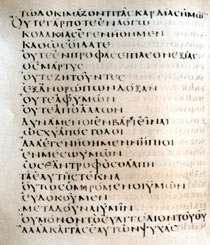 ΤΩΔΟΚΙΜΑΖΟΝΤΙΤΑϹΚΑΡΔΙΑϹΗΜΩ̅
ΟΥΤΕΓΑΡΠΟΤΕΕΝΛΟΓΩ
ΚΟΛΑΚΙΑϹΕΓΕΝΗΘΗΜΕΝ
ΚΑΘΩϹΟΙΔΑΤΕ
ΟΥΤΕΕΝΠΡΟΦΑϹΕΙΠΛΕΟΝΕΞΙΑϹ
ΘϹΜΑΡΤΥϹ
ΟΥΤΕΖΗΤΟΥΝΤΕϹ
ΕΞΑΝΘΡΩΠΩΝΔΟΞΑΝ
ΟΥΤΕΑΦΥΜΩΝ
ΟΥΤΕΑΠΑΛΛΩΝ
ΔΥΝΑΜΕΝΟΙΕΝΒΑΡΕΙΕΙΝΑΙ
ΩϹΧΥΑΠΟϹΤΟΛΟΙ
ΑΛΛΑΕΓΕΝΗΘΗΜΕΝΗΠΙΟΙ
ΕΝΜΕϹΩΥΜΩΝ
ΩϹΕΑΝΤΡΟΦΟϹΘΑΛΠΗ
ΤΑΕΑΥΤΗϹΤΕΚΝΑ
ΟΥΤΩϹΟΜΕΙΡΟΜΕΝΟΙΥΜΩΝ
ΕΥΔΟΚΟΥΜΕΝ
ΜΕΤΑΔΟΥΝΑΙΥΜΙΝ
ΟΥΜΟΝΟΝΤΟΕΥΑΓΓΕΛΙΟΝΤΟΥΘΥ
ΑΛΛΑΚΑΙΤΑϹΕΑΥΤΩΝΨΥΧΑϹ